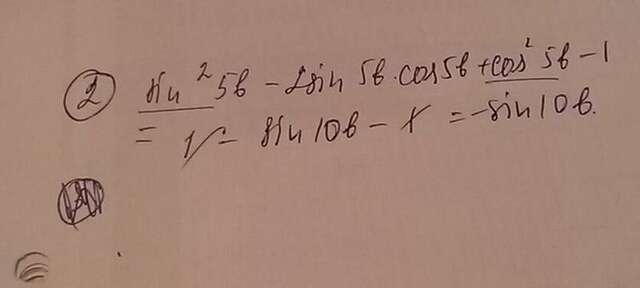 ② sin² 5в - 2sin 5в · cos 5в + cos² 5в - 1
= 1 - sin 10в - 1 = -sin 10в.